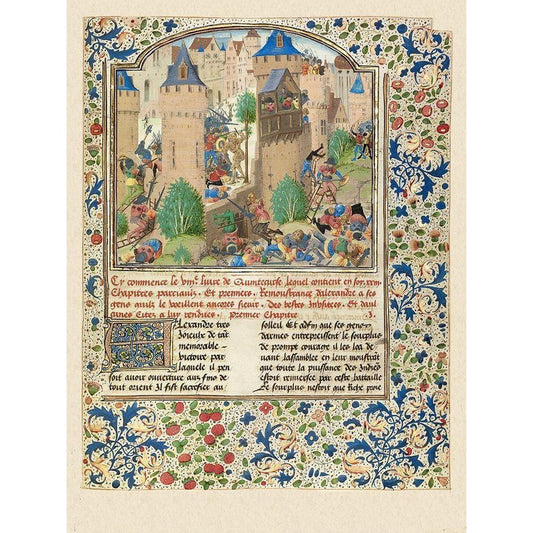 Cy commence le viii.e livre de Quinte curse lequel contient en soy xxiii
Chapitres parciaulx. Et premiers Remonstrance dalexandre a ses
gens quilz le veillent encores sieuir. Des bestes Indoises. Et daul
cunes Citez a luy rendues. Premier Chapitre .j.
Alexandre tres
Joieux de tāt
memorable
victoire par
laquele il pen
soit avoir ouverture aux fins de
tout orient Il fist sacrefier au
solleil Et adfin que ses gens
darmes entrepreissent le sourplus
de prompt couraige il les loa de
vant lassamblee en leur monstrant
que toute la puissance des Indies
estoit renversee par ceste bataille
Le sourplus nestoit que riche proie